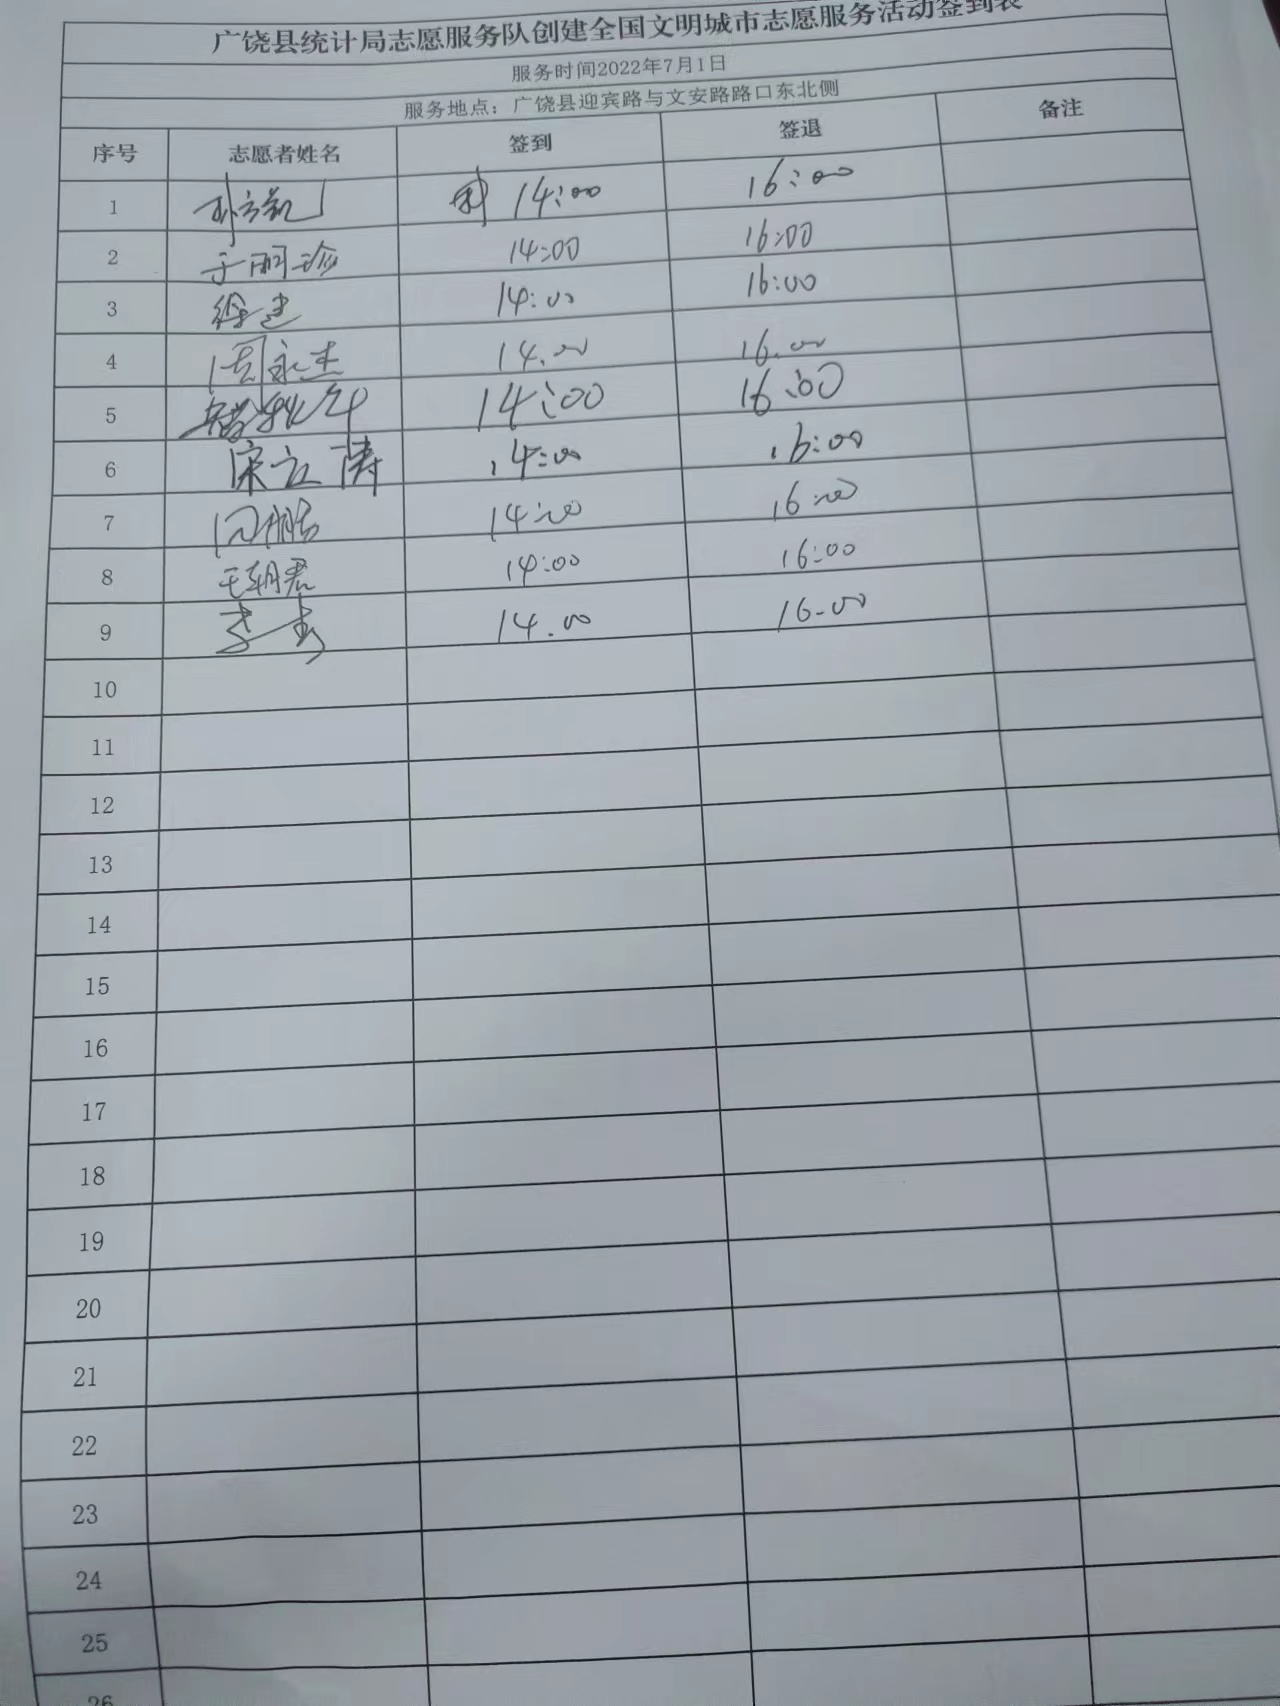 广饶县统计局志愿服务队创建全国文明城市志愿服务活动签到表
服务时间2022年7月1日
服务地点：广饶县迎宾路与文安路路口东北侧
序号 志愿者姓名 签到 签退 备注
1 14:00 16:00
2 于丽珍 14:00 16:00
3 徐建 14:00 16:00
4 周永杰 14.00 16.00
5 14:00 16:00
6 宋立涛 14:00 16:00
7 14:00 16:00
8 王朝君 14:00 16:00
9 李 14.00 16-00
10
11
12
13
14
15
16
17
18
19
20
21
22
23
24
25
26